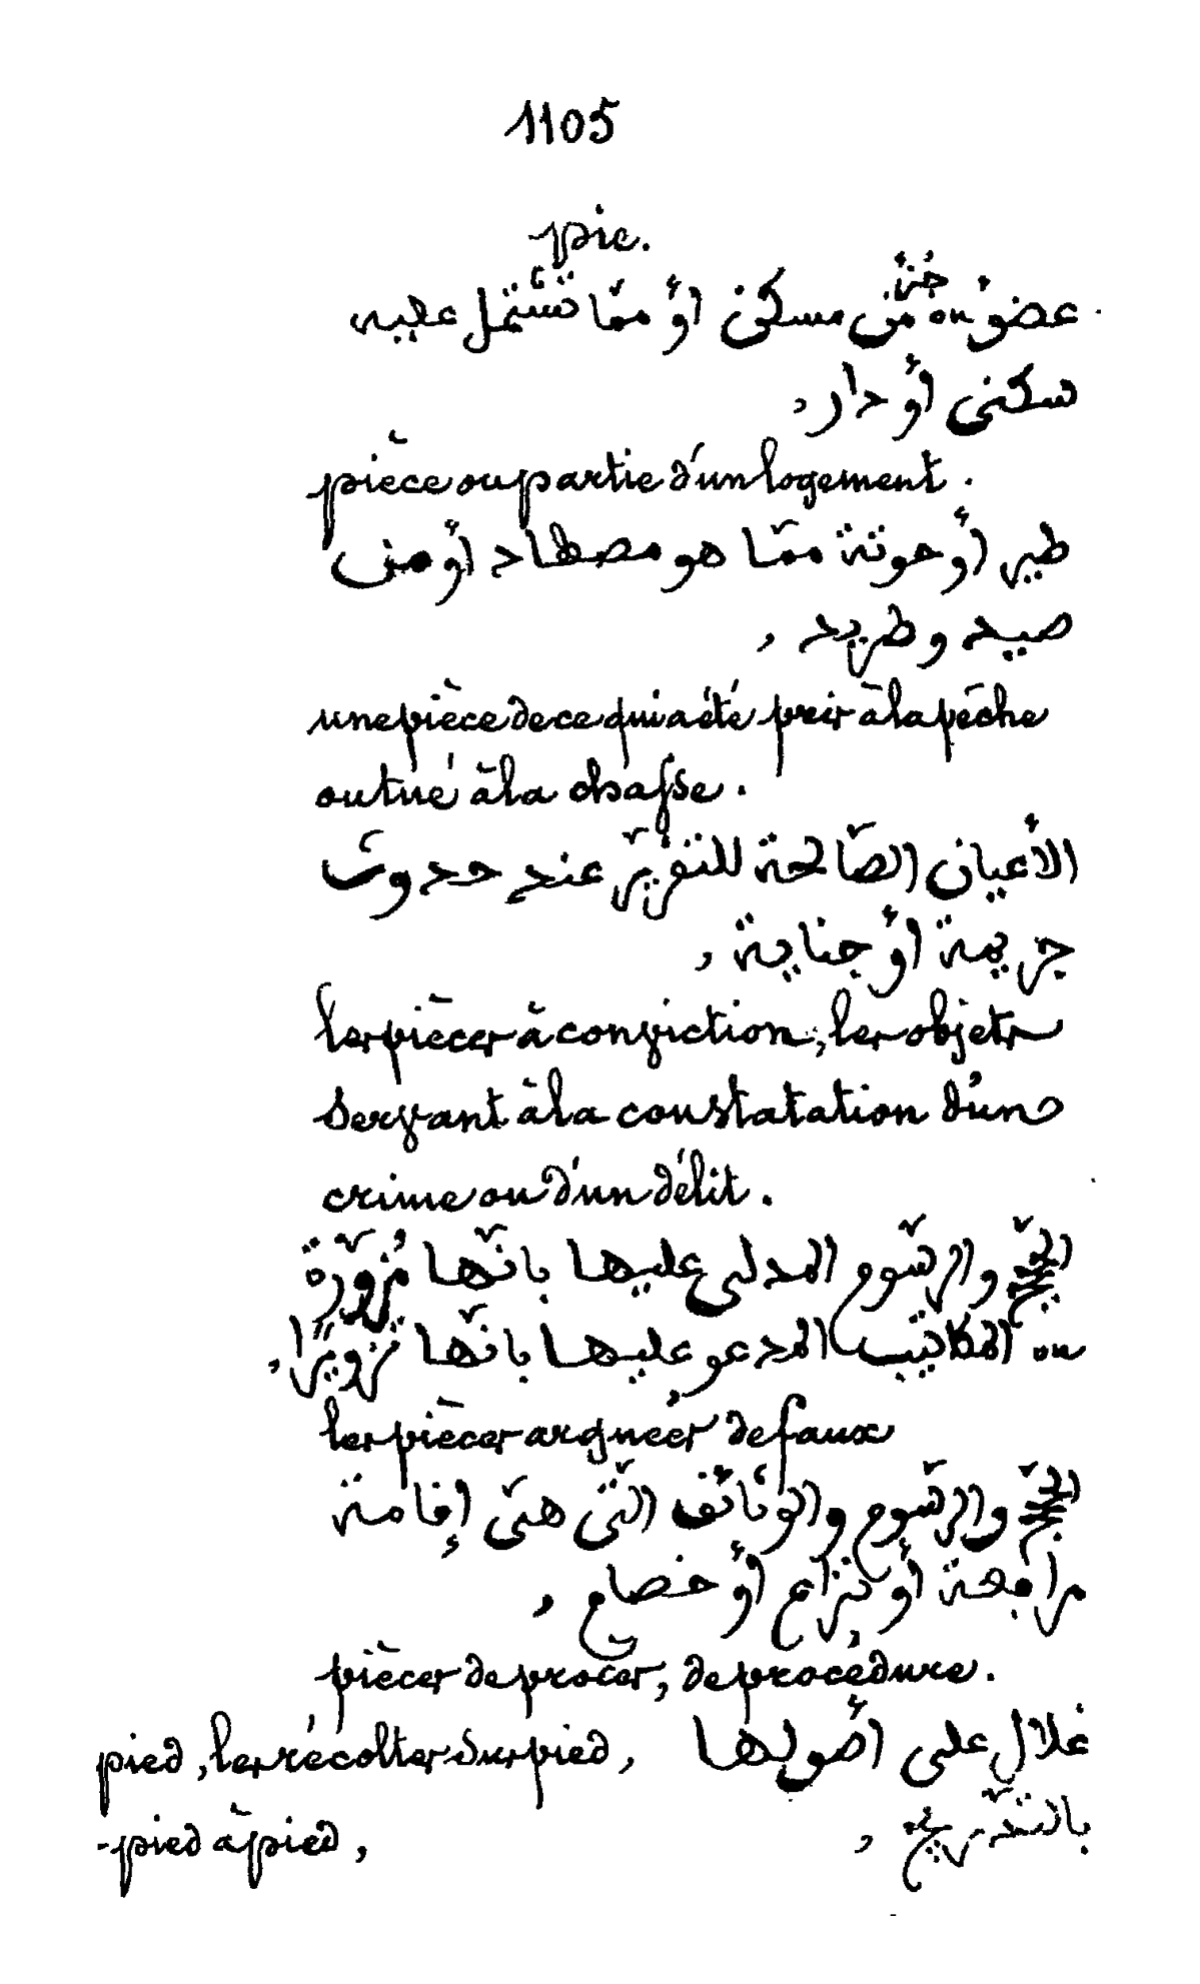 1105
pie.
عضوٌ ou جُزءٌ من مسكن أوْ ممّا تشتمل عليه
سكنى أوْ دار,
pièce ou partie d'un logement.
طير أوْ حوتة ممّا هو مصطاد أوْ من
صيد وطريد,
une pièce de ce qui a été pris à la pêche
ou tué à la chasse.
الأعيان الصّالحة للتقرير عند حدوث
جريمة أوْ جناية,
les pièces à conviction, les objets
servant à la constatation d'un
crime ou d'un délit.
الحجج والرّسوم المدلى عليها بانّها مُزوّرة
ou المكاتيب المدعو عليها بانّها تزويرًا,
les pièces arguées de faux
الحجج والرّسوم والوثائق الّتى هىَ إقامة
مرافعة أوْ نزاع أوْ خصام,
pièces de procès, de procédure.
pied, les récoltes sur pied, غلال على أصولها
-pied à pied, بالتدّريج,